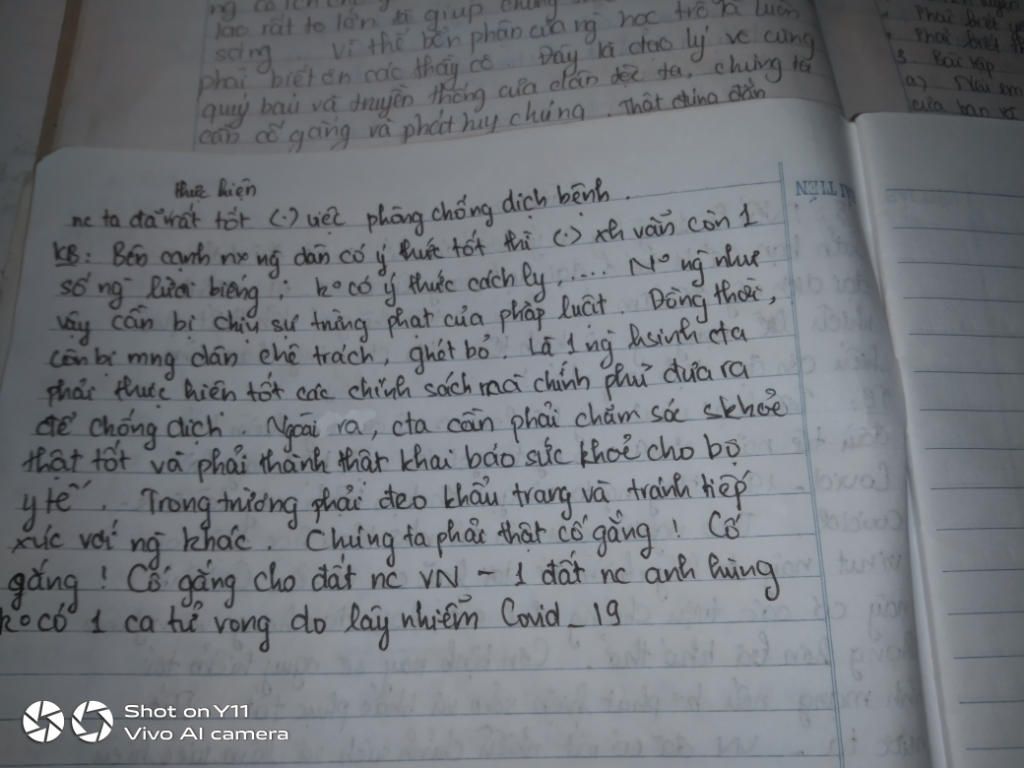 lao rất to lớn đã giúp chúng
sáng. Vì thế bổn phận của ng học trò là luôn
phải biết ơn các thầy cô. Đây là đạo lý vô cùng
quý báu và truyền thống của dân tộc ta, chúng ta
cần cố gắng và phát huy chúng. Thật đúng đắn
3. Bài tập
a)
của bạn
thực hiện
nc ta đã rất tốt (.) việc phòng chống dịch bệnh.
KB: Bên cạnh nx ng dân có ý thức tốt thì (.) xh vẫn còn 1
số ng lười biếng; ko có ý thức cách ly,.... No ng như
vậy cần bị chịu sự trừng phạt của pháp luật. Đồng thời,
còn bị mng dân chê trách, ghét bỏ. Là 1 ng hsinh cta
phải thực hiện tốt các chính sách mà chính phủ đưa ra
để chống dịch. Ngoài ra, cta cần phải chăm sóc skhoẻ
thật tốt và phải thành thật khai báo sức khoẻ cho bộ
y tế. Trong trường phải đeo khẩu trang và tránh tiếp
xúc với ng khác. Chúng ta phải thật cố gắng! Cố
gắng! Cố gắng cho đất nc VN - 1 đất nc anh hùng
ko có 1 ca tử vong do lây nhiễm Covid_19
Shot on Y11
Vivo AI camera